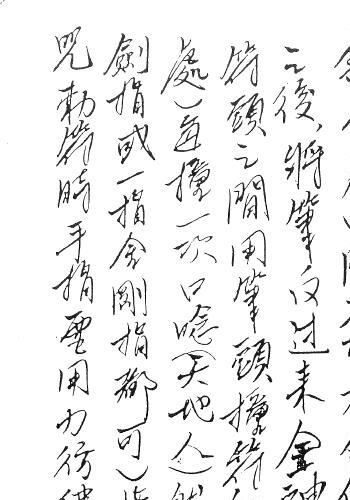 之後，將筆反过来，金
符頭之間用筆頭撞符
處）每撞一次口唸（天地人）
劍指或一指金剛指都可）
咒勅符時手指要用力彷